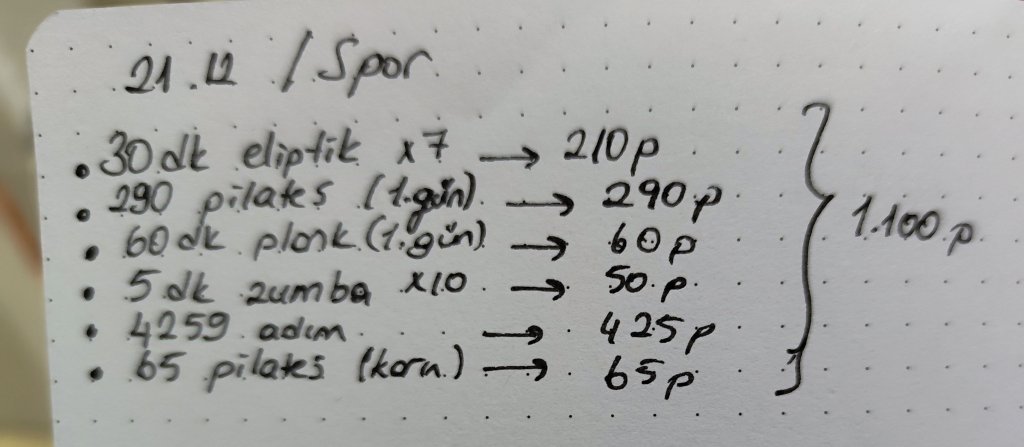 21.12 / Spor
• 30 dk eliptik x7 → 210 p
• 290 pilates (1.gün) → 290 p
• 60 dk plank (1.gün) → 60 p
• 5 dk zumba x10 → 50 p
• 4259 adım → 425 p
• 65 pilates (karın) → 65 p
1.100 p